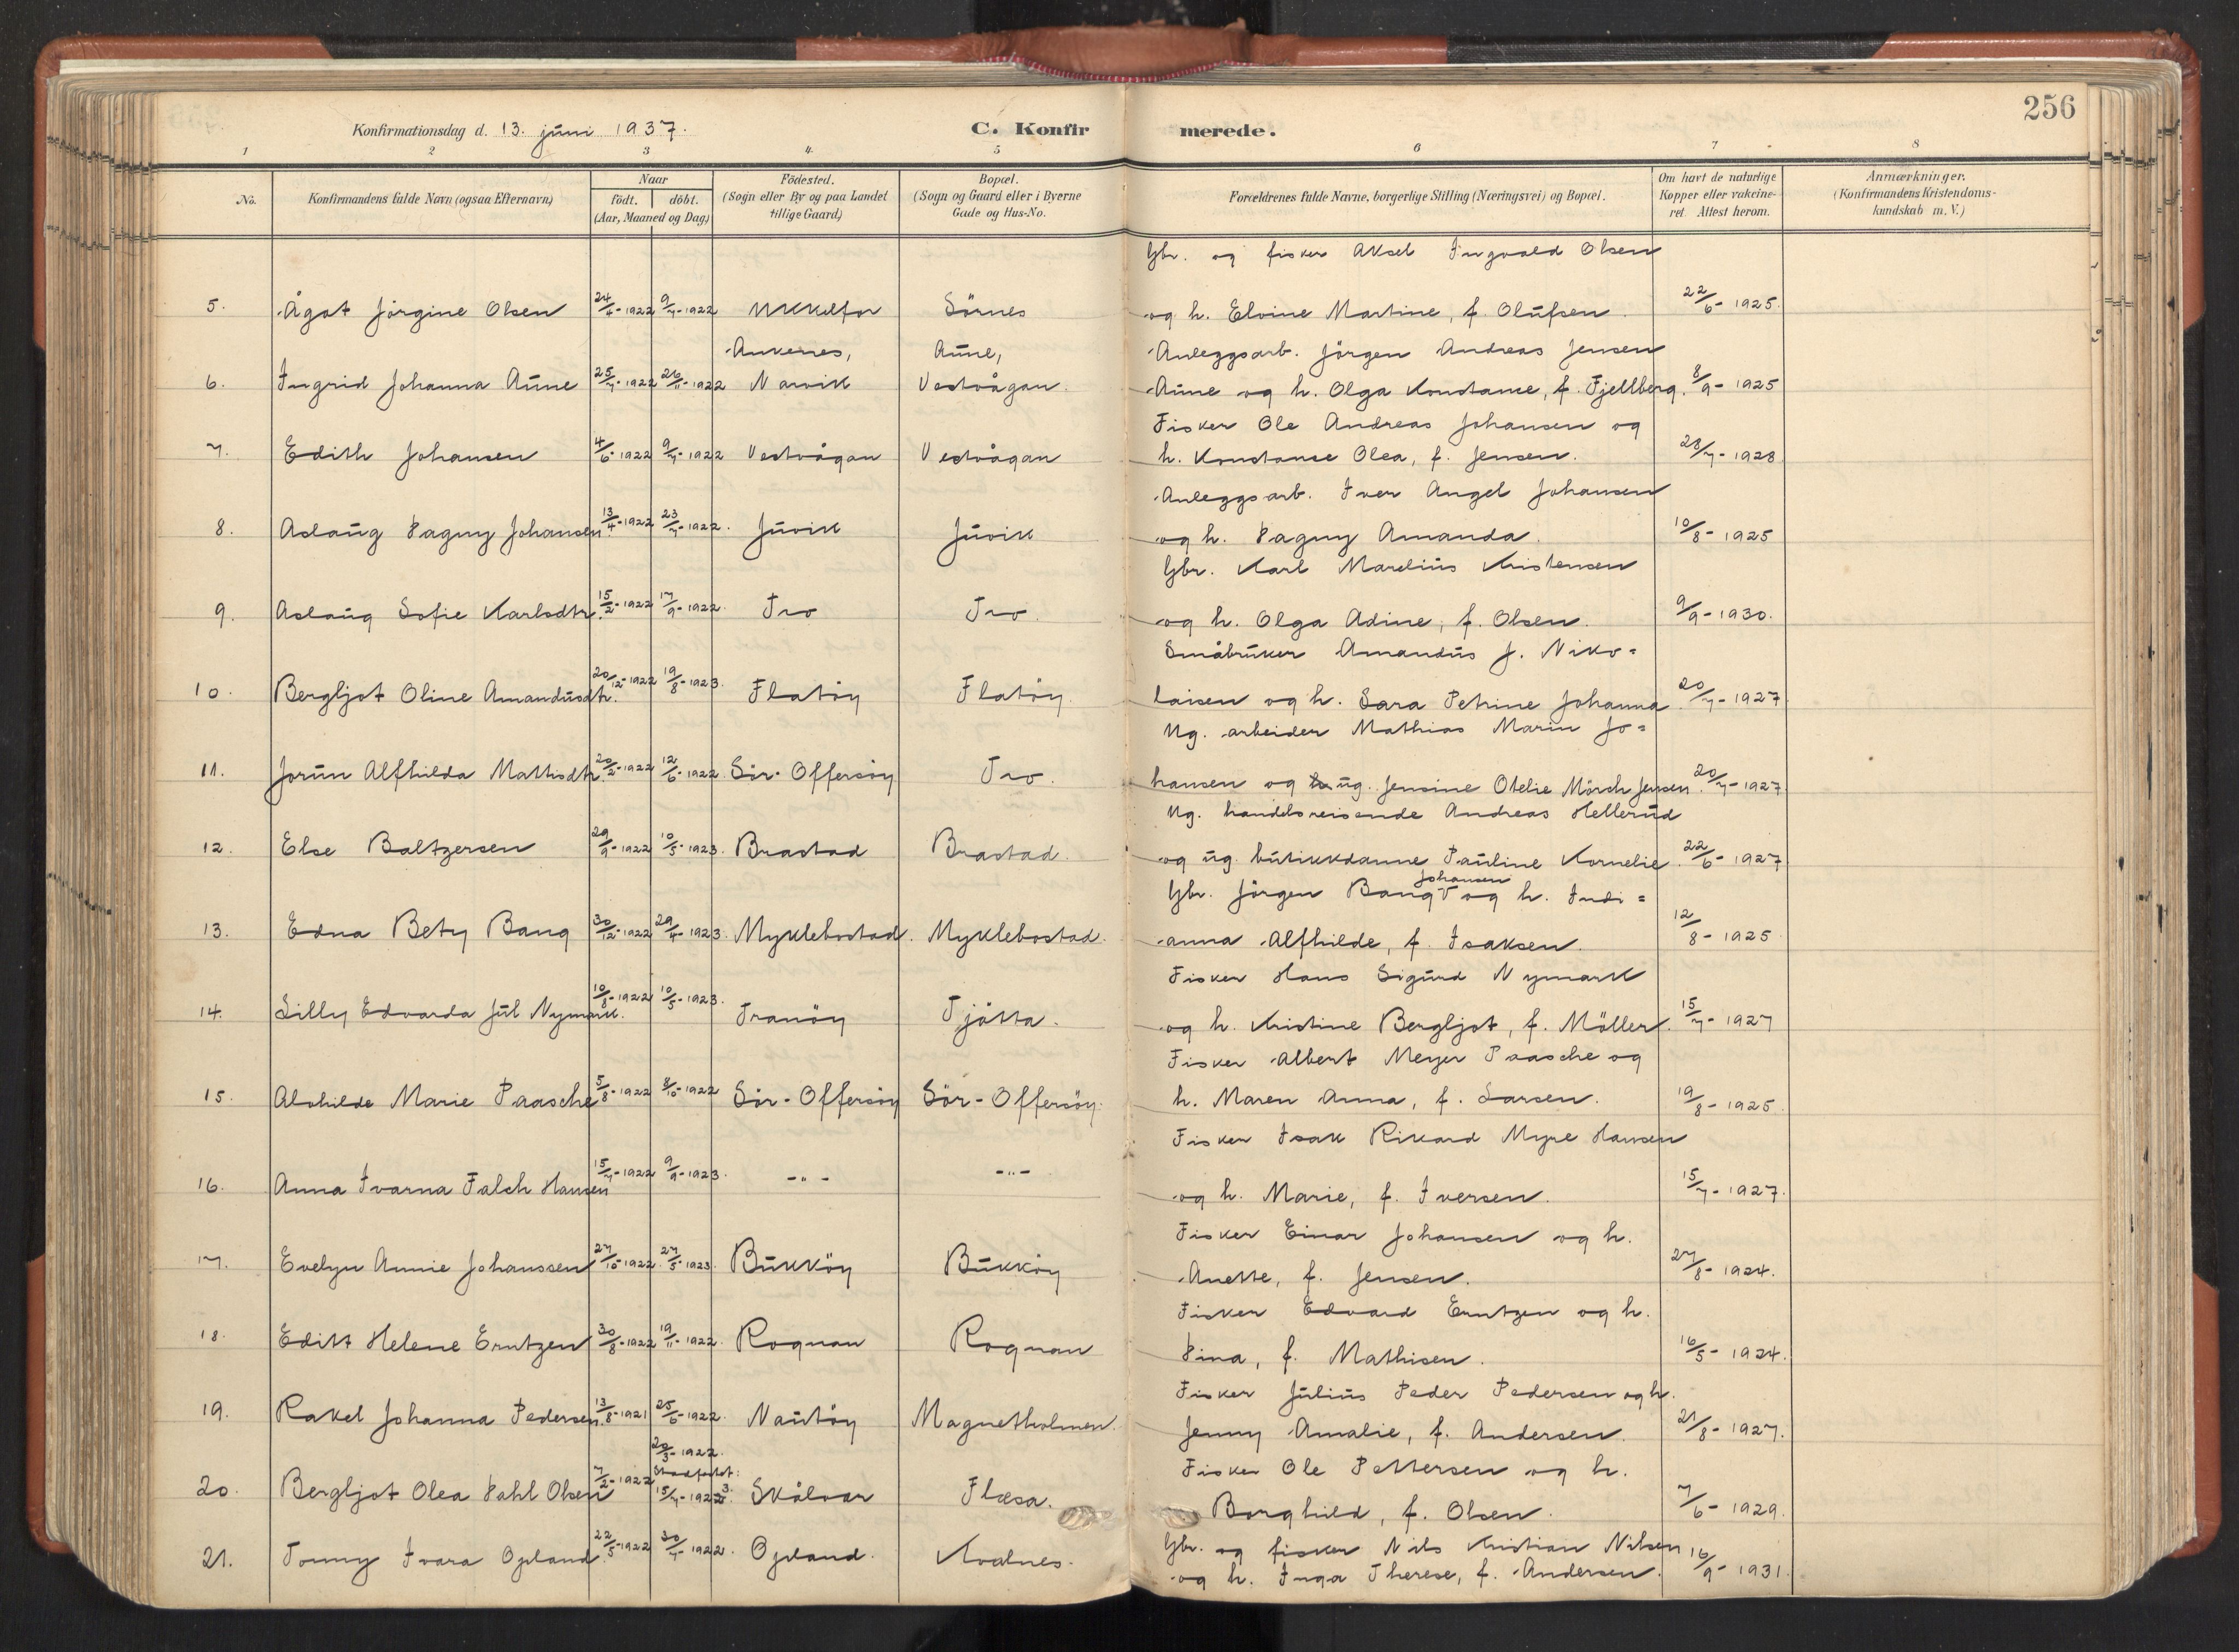 256
Konfirmationsdag d. 13. juni 1937.
C. Konfirmerede.
1 2 3 4 5 6 7 8
No.
Konfirmandens fulde Navn (ogsaa Efternavn)
Naar
födt. döbt.
(Aar, Maaned og Dag)
Födested.
(Sogn eller By og paa Landet
tillige Gaard)
Bopæl.
(Sogn og Gaard eller i Byerne
Gade og Hus-No.
Forældrenes fulde Navne, borgerlige Stilling (Næringsvei) og Bopæl.
Om havt de naturlige
Kopper eller vakcine-
ret. Attest herom.
Anmærkninger.
(Konfirmandens Kristendoms-
kundskab m. V.)
Gbr. og fisker Aksel Ingvald Olsen
5. Ågot Jörgine Olsen 24/4-1922 9/7-1922 Sörnes og h. Elvine Martine, f. Olufsen. 22/6-1925.
Ankenes, Aune, Anleggsarb. Jörgen Andreas Jensen
6. Ingrid Johanna Aune 25/7-1922 26/11-1922 Narvik Vestvågan. Aune og h. Olga Konstanse, f. Fjellberg. 8/9-1925
Fisker Ole Andreas Johansen og
7. Edith Johansen 4/6-1922 9/7-1922 Vestvågan Vestvågan h. Konstanse Olea, f. Jensen. 28/7-1928
Anleggsarb. Iver Angel Johansen
8. Aslaug Dagny Johansen. 13/4-1922 23/7-1922. Juvik Juvik og h. Dagny Amanda. 10/8-1925
Gbr. Karl Marelius Kristensen
9. Aslaug Sofie Karlsdtr. 15/2-1922 17/9-1922. Tro Tro. og h. Olga Adine, f. Olsen. 9/9-1930.
Småbruker Amandus J. Niko=
10. Bergljot Oline Amandusdtr. 20/12-1922 19/8-1923. Flatöy Flatöy. laisen og h. Sara Petrine Johanna. 20/7-1927.
Ug. arbeider Mathias Marin Jo=
11. Jorun Alfhilda Mathisdtr. 20/2-1922 12/6-1922. Sör-Offersöy Tro. hansen og ug. Jensine Otelie Mörch Jensen. 20/7-1927.
Ug. handelsreisende Andreas Hellerud
12. Else Baltzersen 29/9-1922 10/5-1923. Brastad Brastad. og ug. butikkdamme Pauline Kornelie. 22/6-1927
Johansen
Gbr. Jörgen Bang og h. Indi=
13. Edna Bety Bang 30/12-1922 29/4-1923. Myklebostad. Myklebostad. anna Alfhilde, f. Isaksen. 12/8-1925
Fisker Hans Sigurd Nymark
14. Lilly Edvarda Jul Nymark. 10/8-1922 10/5-1923. Tranöy Tjötta. og h. Kristine Bergljot, f. Möller. 15/7-1927
Fisker Albert Meyer Paasche og
15. Alvhilde Marie Paasche 5/8-1922 8/10-1922 Sör-Offersöy Sör-Offersöy. h. Maren Anna, f. Larsen. 19/8-1925.
Fisker Isak Rikard Myre Hansen
16. Anna Ivarna Falch Hansen 15/7-1922 9/9-1923. -"- -"- og h. Marie, f. Iversen. 15/7-1927.
Fisker Einar Johansen og h.
17. Evelyn Annie Johanssen 27/10-1922. 27/5-1923. Bukköy Bukköy Anette, f. Jensen. 27/8-1924.
Fisker Edvard Erntzen og h.
18. Editt Helene Erntzen 30/8-1922 19/11-1922. Rognan Rognan Dina, f. Mathisen. 16/5-1924.
Fisker Julius Peder Pedersen og h.
19. Rakel Johanna Pedersen. 13/8-1921 25/6-1922. Nautöy Magnetholmen. Jenny Amalie, f. Andersen. 21/8-1927.
20/3-1922. Fisker Ole Pettersen og h.
Stadfestet:
20. Bergljot Olea Dahl Olsen 7/2-1922 15/7-1923. Skålvær Flæsa. Borghild, f. Olsen. 7/6-1929.
Gbr. og fisker Nils Kristian Nilsen
21. Tonny Ivara Opland. 22/5-1922 30/7-1922. Opland. Kvalnes. og h. Inga Therese, f. Andersen. 16/9-1931.